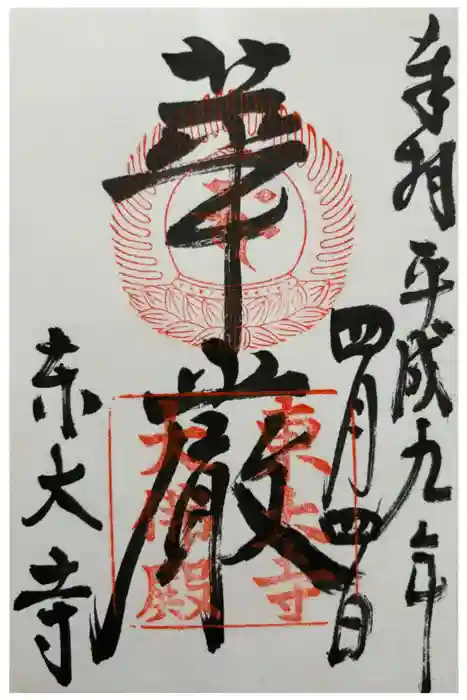 奉拝 平成九年
四月四日
華嚴
東大寺
大佛殿
東大寺